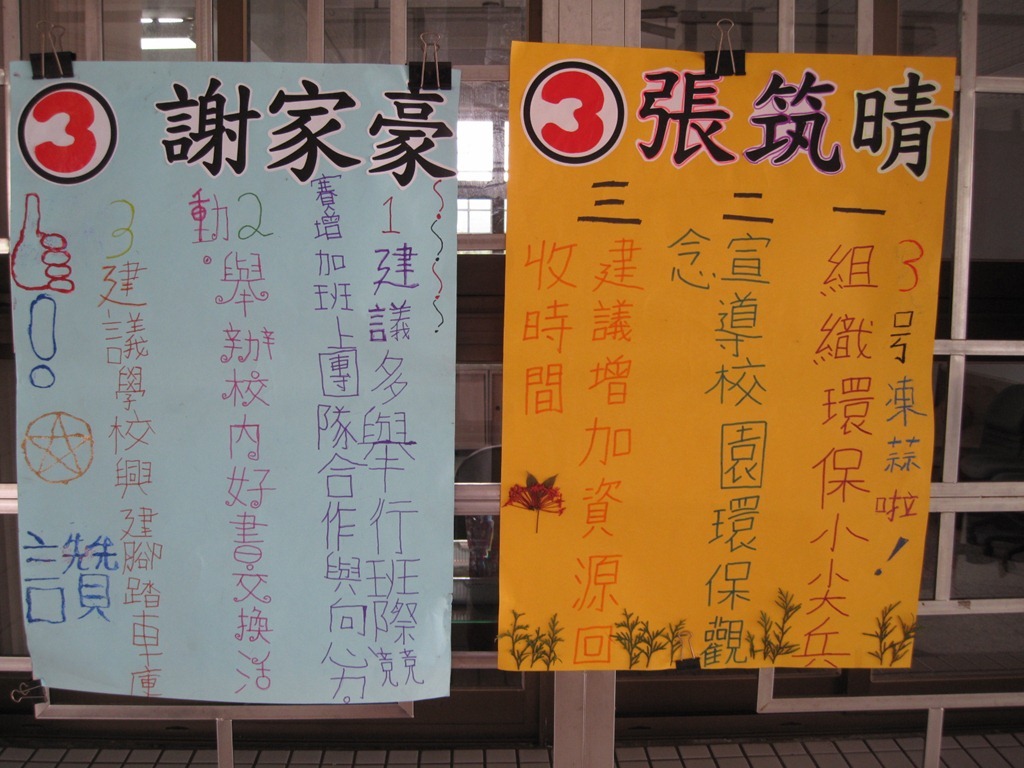 3 謝家豪
1 建議多舉行班際競
賽增加班上團隊合作與向心力。
2 舉辦校內好書交換活
動。
3 建議學校興建腳踏車庫
讚
3 張筑晴
3号凍蒜啦!
一 組織環保小尖兵
二 宣導校園環保觀
念
三 建議增加資源回
收時間